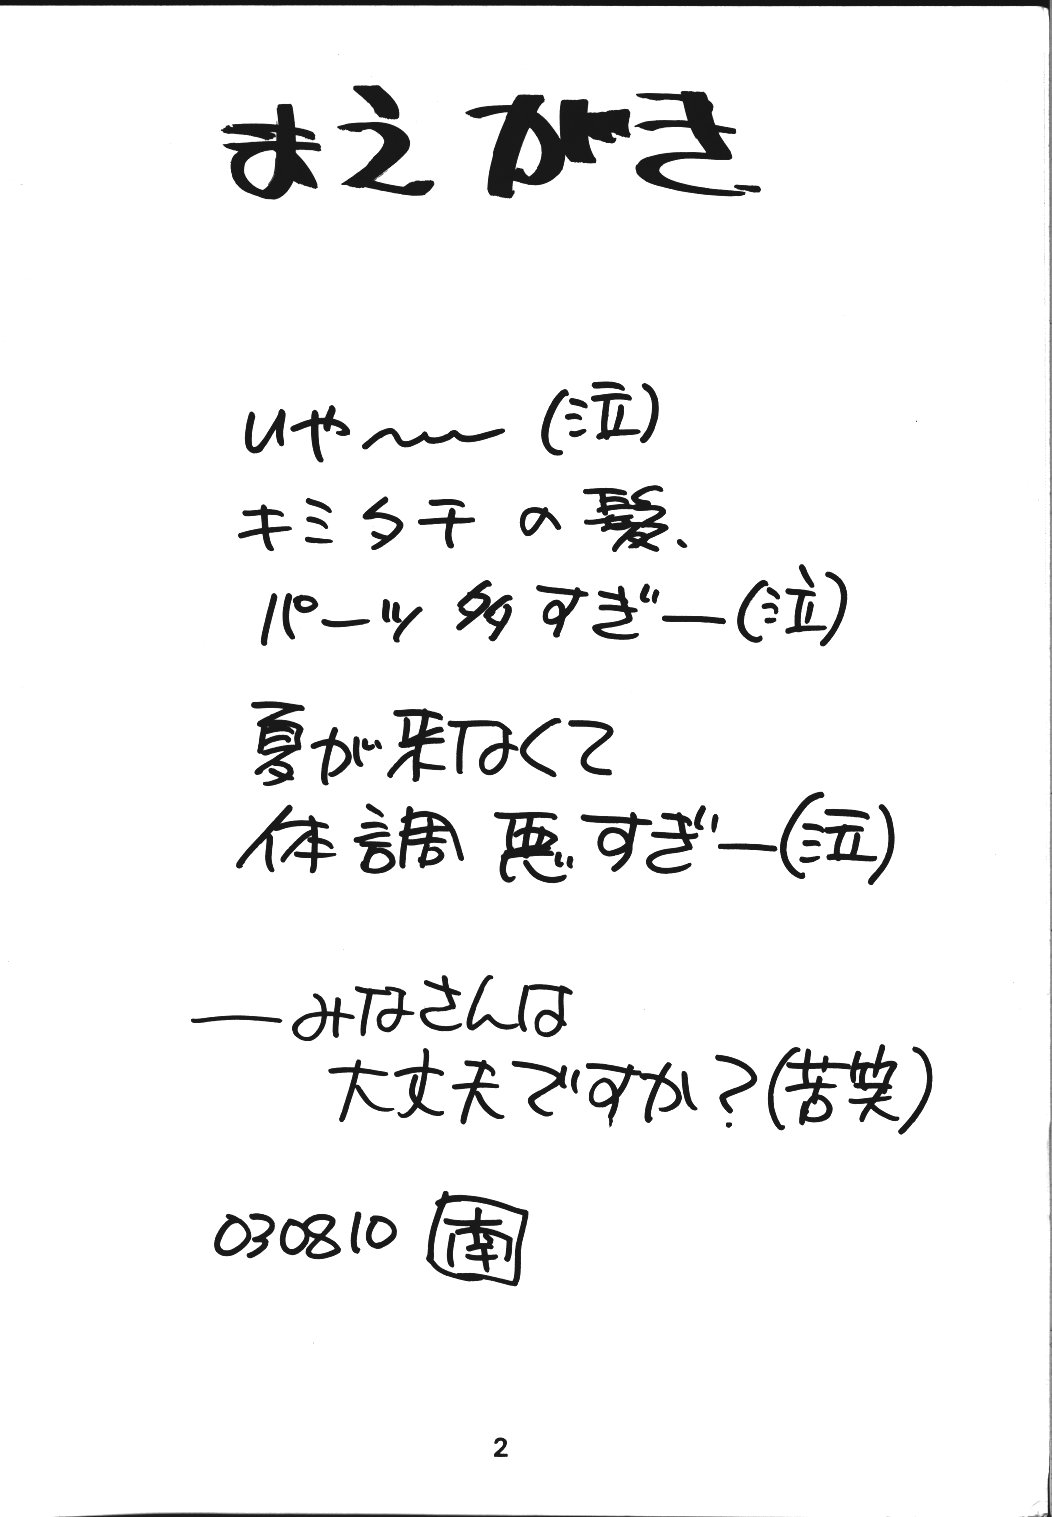 まえがき
いや〜〜 (泣)
キミタチの髪、
パーツ多すぎー(泣)
夏が来なくて
体調悪すぎー(泣)
――みなさんは
大丈夫ですか?(苦笑)
030810 南
2